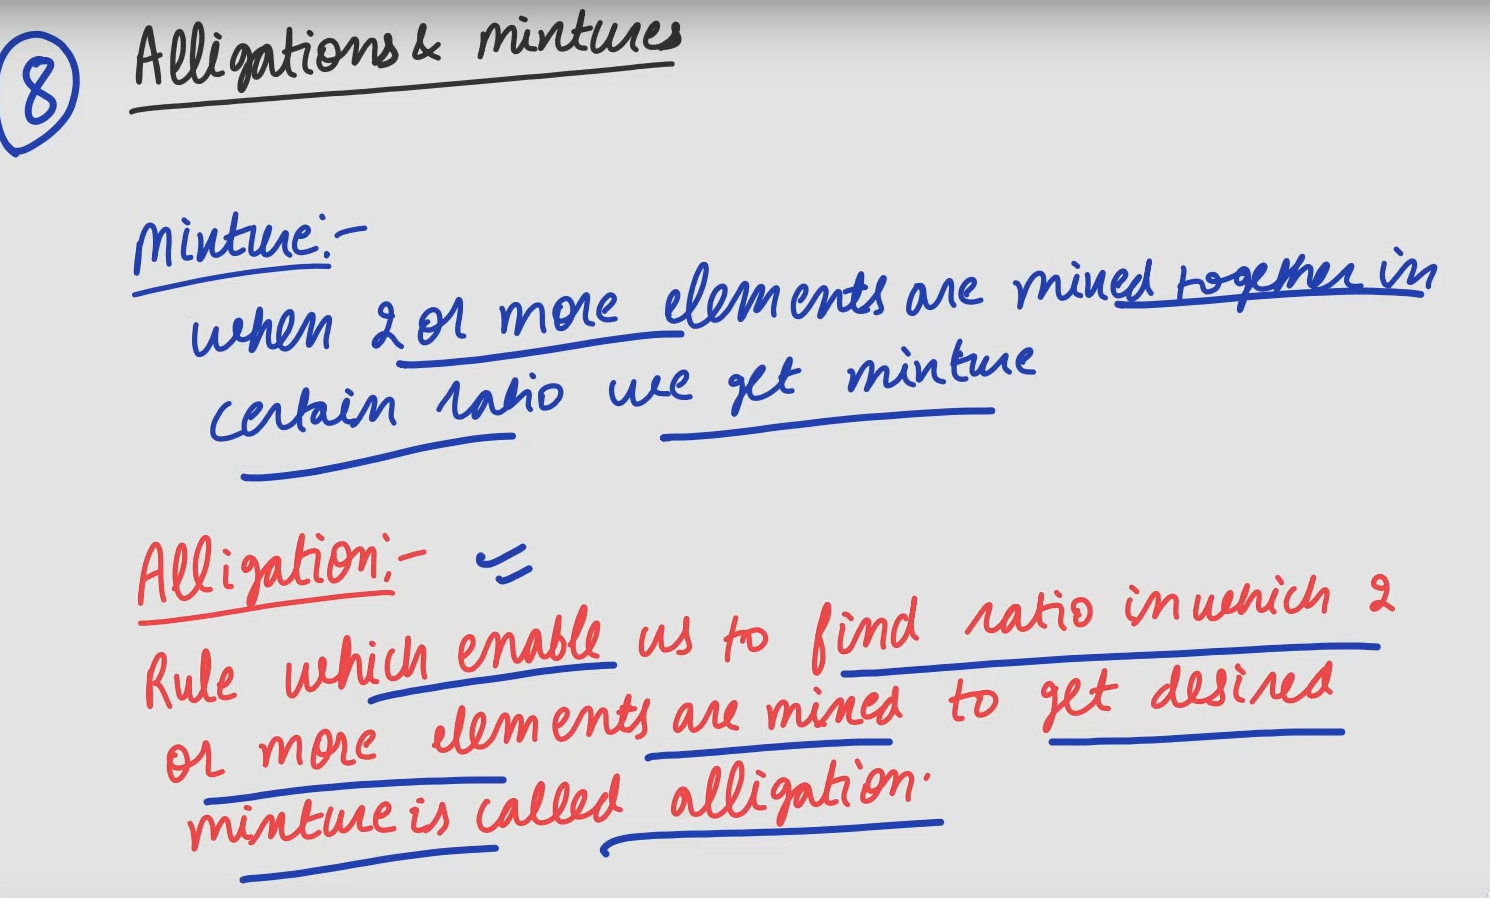 8
Alligations & mixtures
Mixture:-
when 2 or more elements are mixed together in
certain ratio we get mixture
Alligation:-
Rule which enable us to find ratio in which 2
or more elements are mixed to get desired
mixture is called alligation.